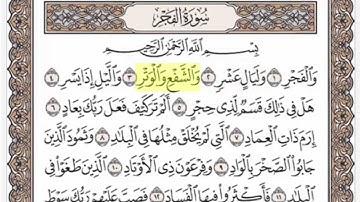 سُورَةُ الفَجْرِ
بِسْمِ ٱللَّهِ ٱلرَّحْمَٰنِ ٱلرَّحِيمِ
وَٱلْفَجْرِ ١ وَلَيَالٍ عَشْرٍ ٢ وَٱلشَّفْعِ وَٱلْوَتْرِ ٣ وَٱلَّيْلِ إِذَا يَسْرِ ٤
هَلْ فِي ذَٰلِكَ قَسَمٌ لِّذِي حِجْرٍ ٥ أَلَمْ تَرَ كَيْفَ فَعَلَ رَبُّكَ بِعَادٍ ٦
إِرَمَ ذَاتِ ٱلْعِمَادِ ٧ ٱلَّتِي لَمْ يُخْلَقْ مِثْلُهَا فِي ٱلْبِلَٰدِ ٨ وَثَمُودَ ٱلَّذِينَ
جَابُوا۟ ٱلصَّخْرَ بِٱلْوَادِ ٩ وَفِرْعَوْنَ ذِي ٱلْأَوْتَادِ ١٠ ٱلَّذِينَ طَغَوْا۟ فِي
ٱلْبِلَٰدِ ١١ فَأَكْثَرُوا۟ فِيهَا ٱلْفَسَادَ ١٢ فَصَبَّ عَلَيْهِمْ رَبُّكَ سَوْطَ